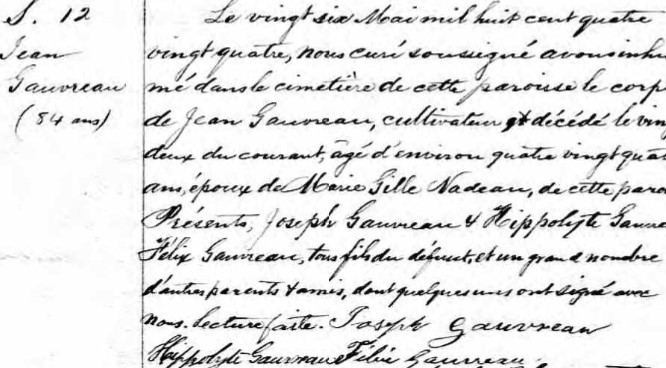 S. 12
Jean
Gauvreau
(84 ans)
Le vingt six Mai mil huit cent quatre
vingt quatre, nous curé soussigné avons inhu
mé dans le cimetière de cette paroisse le corp
de Jean Gauvreau, cultivateur décédé le vin
deux du courant, âgé d'environ quatre vingt quat
ans, époux de Marie Gille Nadeau, de cette paro
Présents, Joseph Gauvreau & Hippolyte Gauvre
Félix Gauvreau, tous fils du défunt, et un grand nombre
d'autres parents & amis, dont quelques uns ont signé avec
nous. Lecture faite. Joseph Gauvreau
Hippolyte Gauvreau Félix Gauvreau.